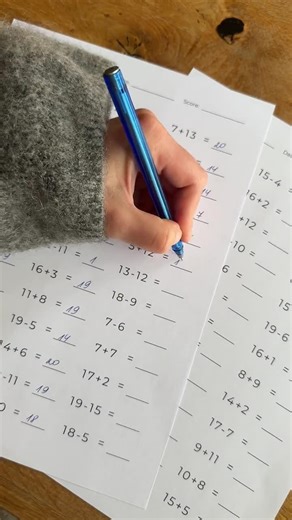 Score
7+13 = 20
= 14
= 14
= 7
-11 = 1
5+12 = 1
16+3 = 19
13-12 =
11+8 = 19
18-9 =
19-5 = 14
7-6 =
4+6 = 20
7+7 =
-11 = 19
17+2 =
0 = 18
19-15 =
18-5 =
15-4 =
16+2 =
+12 =
-10 =
6 =
15
19-6
16+1 =
8+9 =
14+2 =
17-7 =
9+11 =
10+8 =
15+5